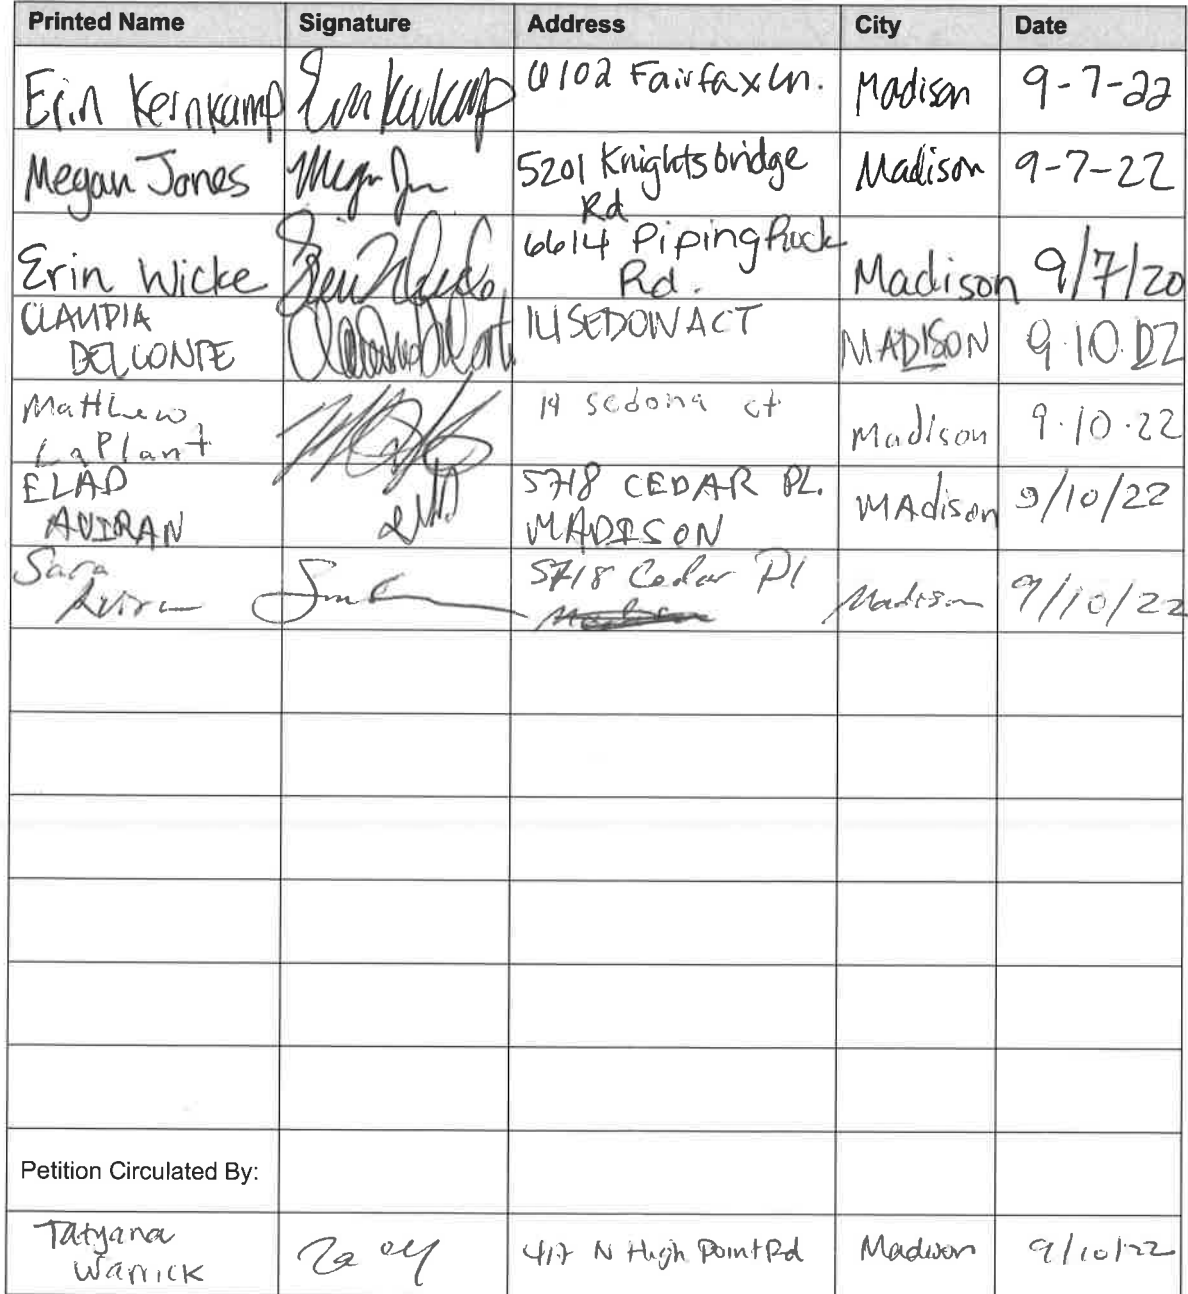 Printed Name Signature Address City Date
Erin Kernkamp Erin Kernkamp 6102 Fairfax Ln. Madison 9-7-22
Megan Jones Megan Jones 5201 Knightsbridge Rd Madison 9-7-22
Erin Wicke 6614 Piping Rock Rd. Madison 9/7/20
CLAUDIA DELCONTE 14 SEDONA CT MADISON 9.10.22
Matthew LaPlant 14 Sedona ct Madison 9.10.22
ELAD AVIRAN 5718 CEDAR PL. MADISON MAdison 9/10/22
Sara Aviran 5718 Cedar Pl Madison 9/10/22
Petition Circulated By:
Tatyana Warrick 417 N High Point Rd Madison 9/10/22